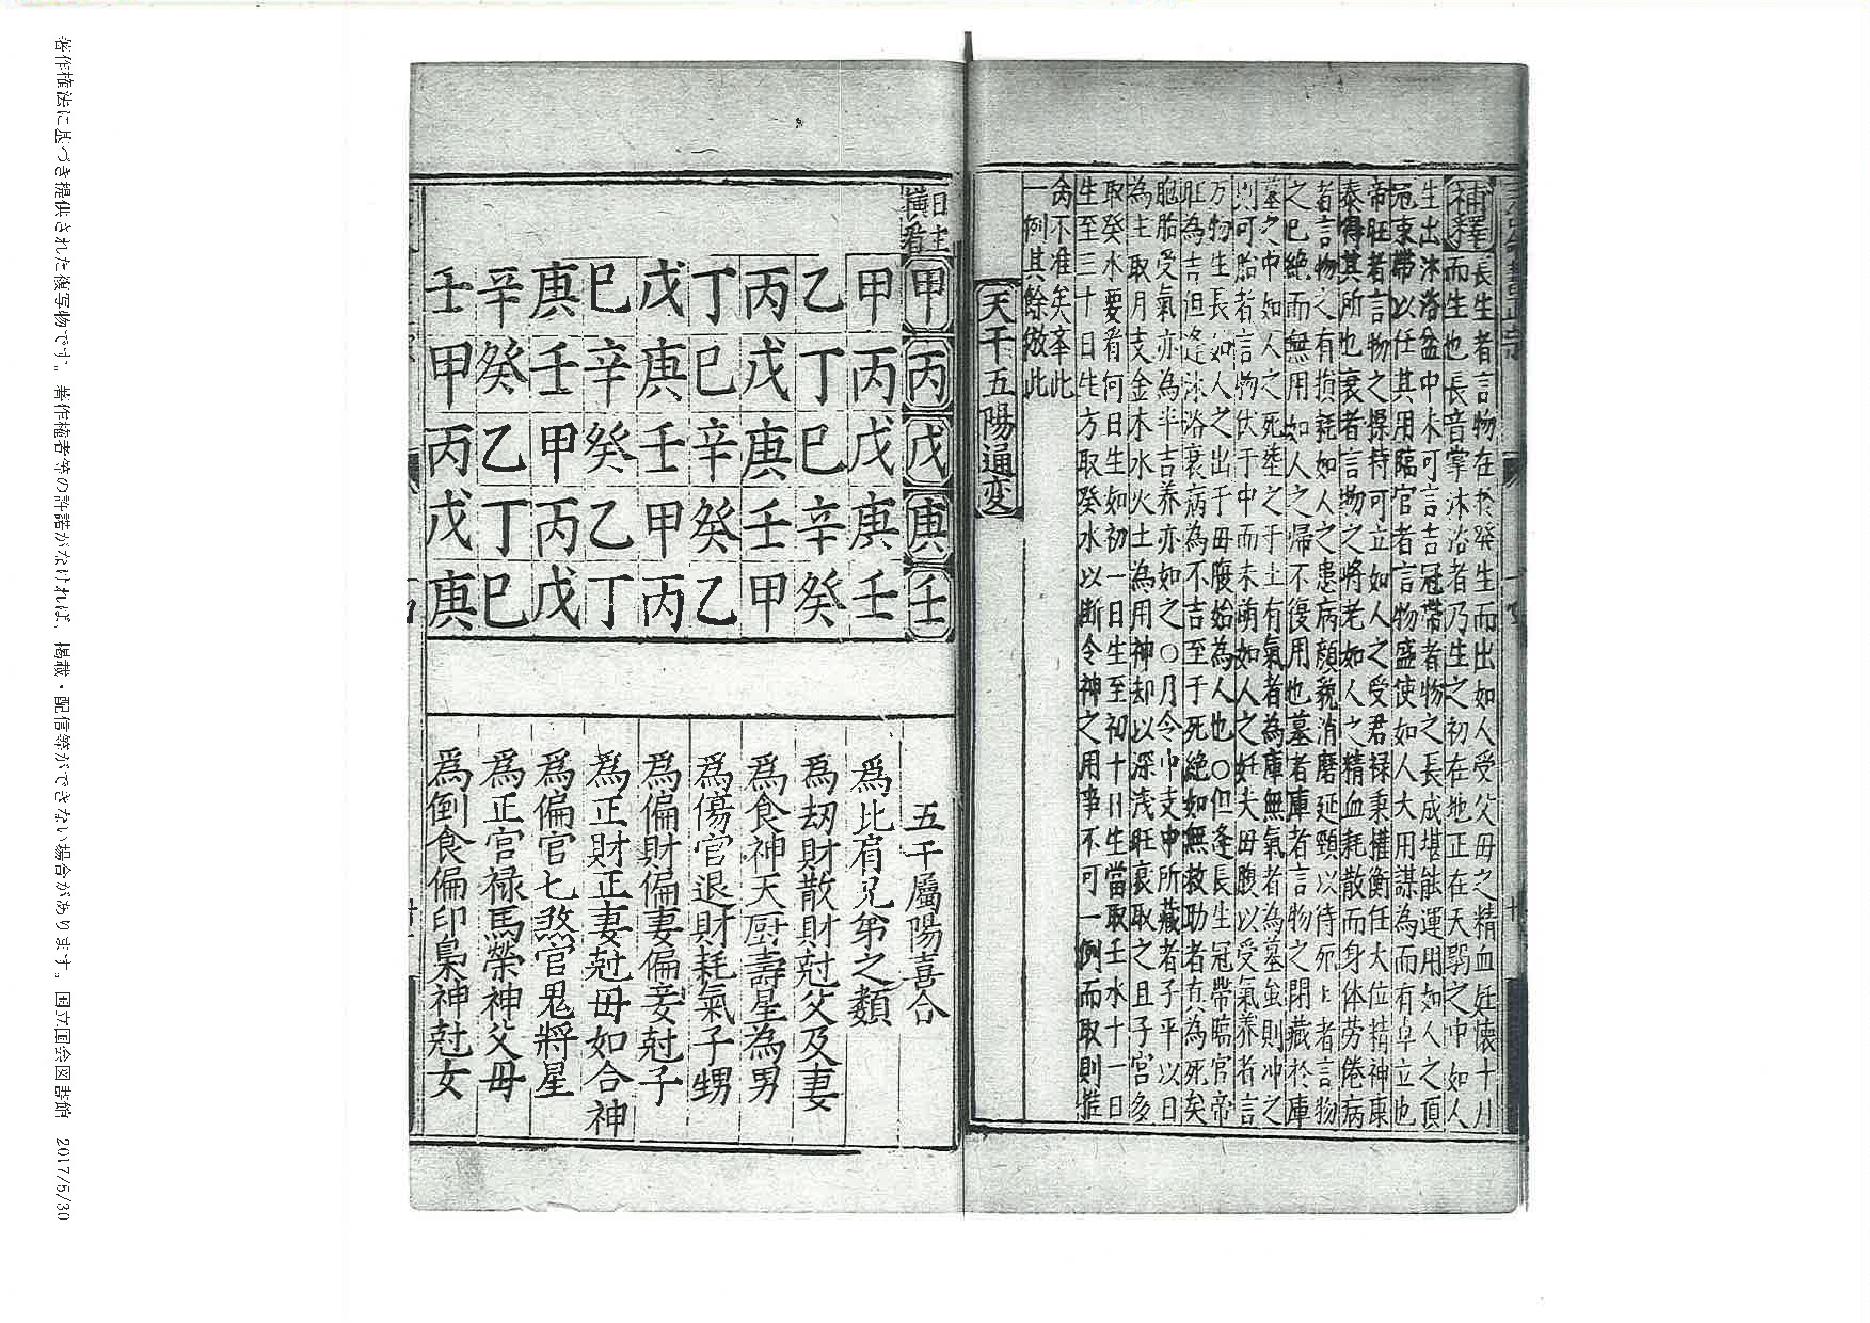 補釋長生者言物在於癸生而出如人受父母之精血姙懷十月
而生也長音掌沐浴者乃生之初在地正在天羇之中如人
生出沐浴盆中未可言吉冠帶者物之長成堪能運用如人之頂
冠束帶以任其用臨官者言物盛使如人大用謀為而有卓立也
帝旺者言物之操持可立如人之受君祿秉權衡任大位精神康
泰得其所也衰者言物之將老如人之精血耗散而身体勞倦病
者言物之有損耗如人之患病顏貌消磨延頸以待死 者言物
之已絕而無用如人之歸不復用也墓者庫者言物之閉藏於庫
墓之中如人之死塟之于土有氣者為庫無氣者為墓 則冲之
則可胎者言物伏于中而未萌如人之姙夫母腹以受氣養者言
万物生長如人之出于毋腹始為人也○但逢長生冠帶臨官帝
旺為吉但逢沐浴衰病為不吉至于死絕如無救助者真為死矣
胞胎受氣亦為半吉養亦如之○月令中支中所藏者子平以日
為主取月支金木水火土為用神却以深淺旺衰取之且子宮多
取癸水要看何日生如初一日生至初十日生當取壬水十一日
生至三十日生方取癸水以断令神之用事不可一例而取則 
 不准矣奉此
一例其餘倣此
天干五陽通变
日主
橫看
甲 丙 戊 庚 壬 五干屬陽喜合
甲 丙 戊 庚 壬 爲比肩兄弟之類
乙 丁 巳 辛 癸 爲刼財散財尅父及妻
丙 戊 庚 壬 甲 爲食神天厨壽星為男
丁 巳 辛 癸 乙 爲傷官退財耗氣子甥
戊 庚 壬 甲 丙 爲偏財偏妻偏妾尅子
巳 辛 癸 乙 丁 爲正財正妻尅母如合神
庚 壬 甲 丙 戊 爲偏官七煞官鬼將星
辛 癸 乙 丁 巳 爲正官祿馬榮神父母
壬 甲 丙 戊 庚 爲倒食偏印梟神尅女
著作権法に基づき提供された複写物です。著作権者等の許諾がなければ、掲載・配信等ができない場合があります。国立国会図書館 2017/5/30